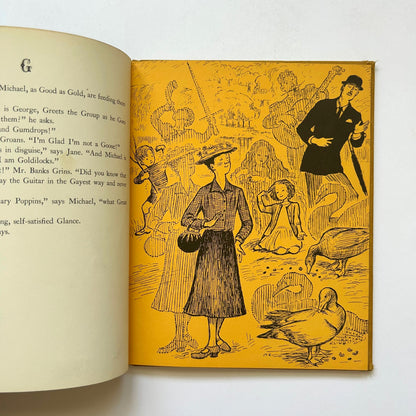 G
Michael, as Good as Gold, are feeding them
is George, Greets the Group as he Goes
them?" he asks.
and Gumdrops!"
Groans. "I'm Glad I'm not a Goose!"
in disguise," says Jane. "And Michael's
I am Goldilocks."
!" Mr. Banks Grins. "Did you know that
ay the Guitar in the Gayest way and never
ary Poppins," says Michael, "what Great
ng, self-satisfied Glance.
ays.